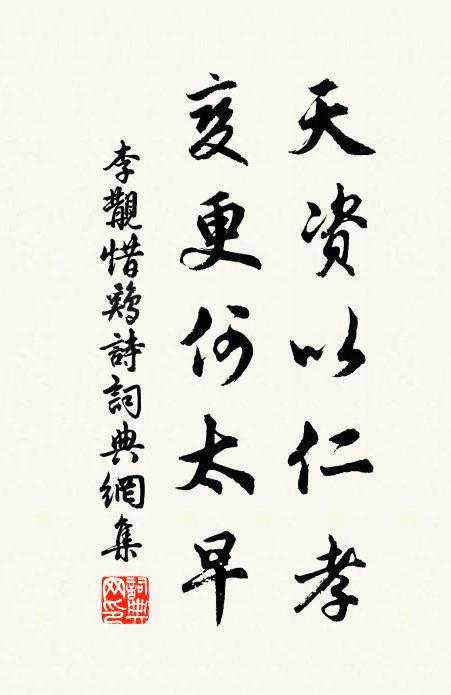 天資以仁孝
变更何太早
李觀惜鷄詩詞典網集
詞典网印